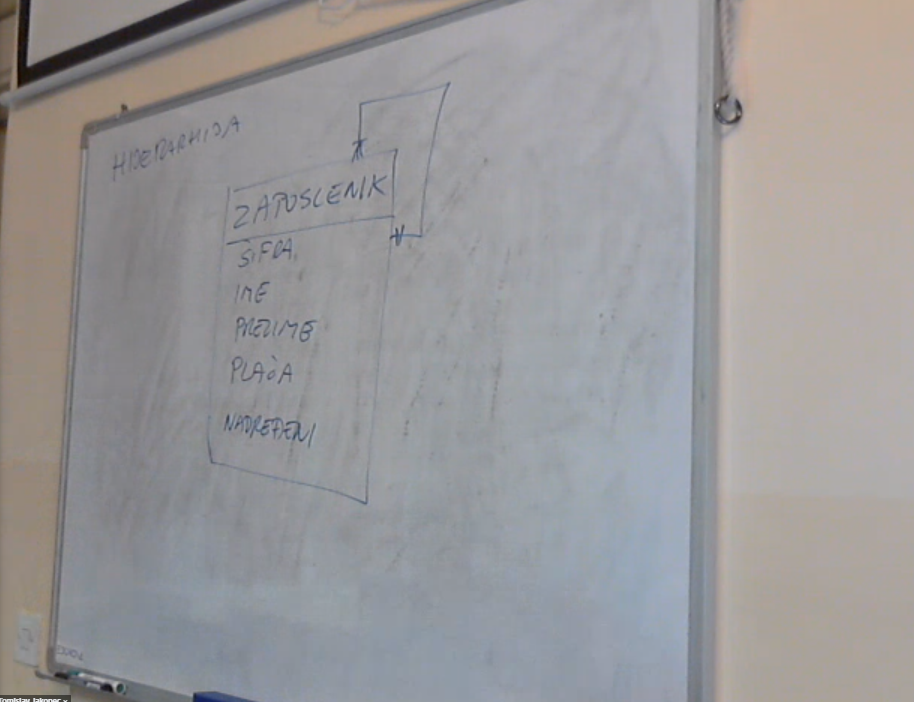 HIJERARHIJA
ZAPOSLENIK
ŠIFRA
IME
PREZIME
PLAĆA
NADREĐENI
Tomislav Jakopec